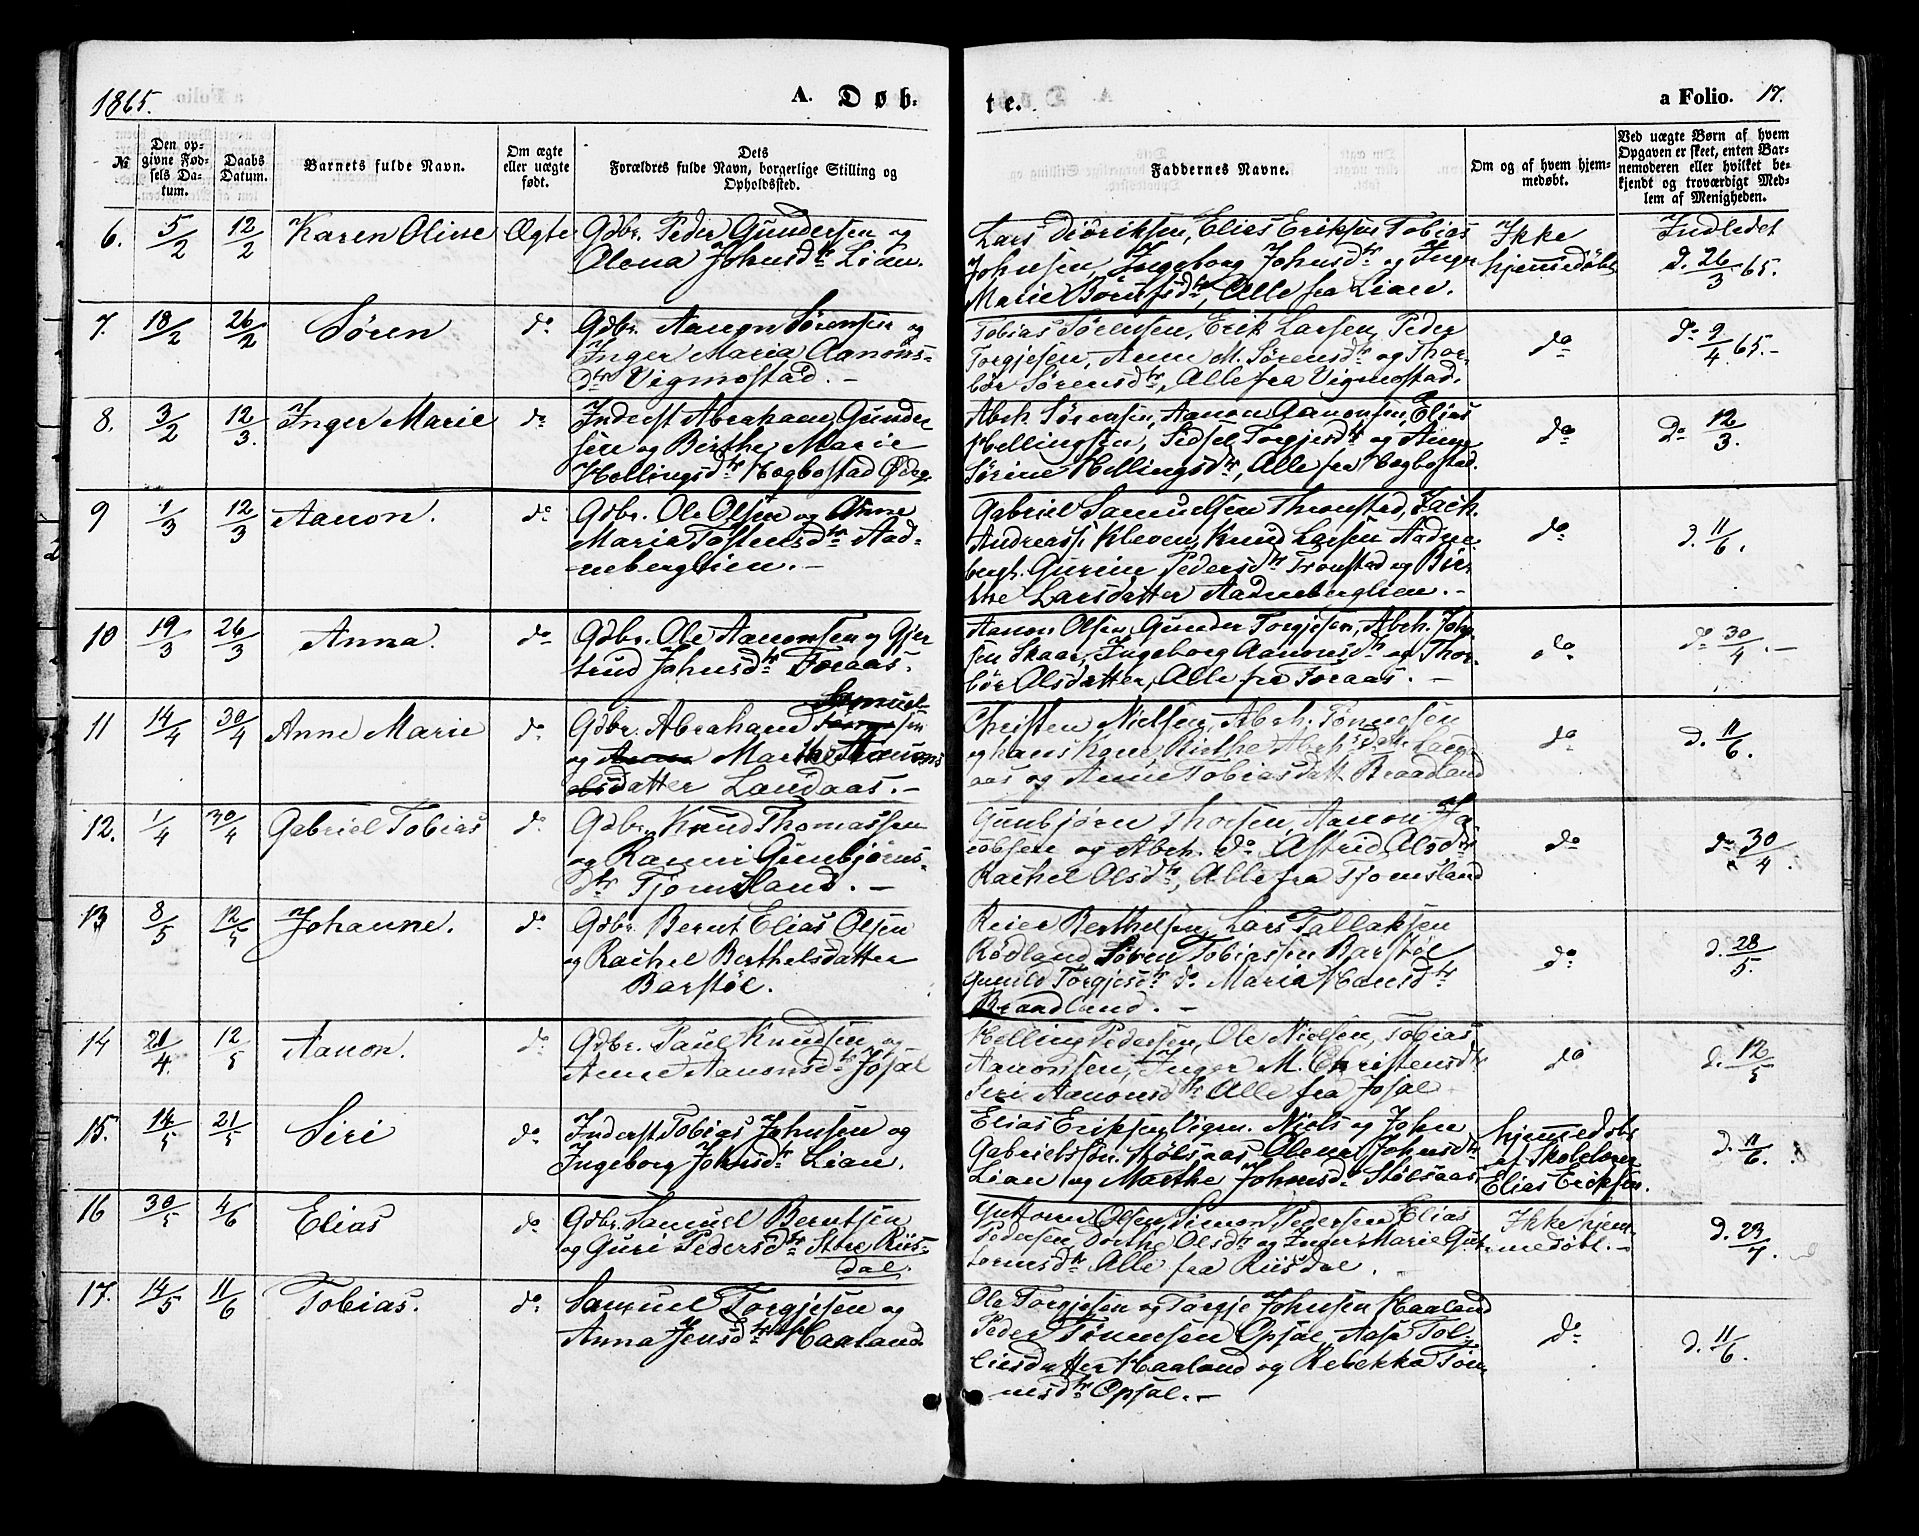 1865.
A. Døb-
te.
a Folio. 17.
№
Den op-
givne Fød-
sels Da-
tum.
Daabs
Datum.
Barnets fulde Navn.
Om ægte
eller uægte
født.
Dets
Forældres fulde Navn, borgerlige Stilling og
Opholdssted.
Faddernes Navne.
Om og af hvem hjem-
medøbt.
Ved uægte Børn af hvem
Opgaven er skeet, enten Bar-
nemoderen eller hvilket be-
kjendt og troværdigt Med-
lem af Menigheden.
6. 5/2 12/2 Karen Oline Ægte
Gdbr. Peder Gundersen og
Olena Johnsdtr Lian.
Lars Didriksen, Elias Eriksen Tobias
Johnsen, Ingeborg Johnsdtr og Inger
Marie Berntsdtr, Alle fra Lian.
Ikke
hjemmedøbt
Indledet
d. 26/3 65.
7. 18/2 26/2 Søren do
Gdbr. Aanon Sørensen og
Inger Maria Aanons-
dtr Vigmostad. –
Tobias Sørensen, Erik Larsen, Peder
Torgjesen, Anne M. Sørensdtr og Thor-
bør Sørensdtr, Alle fra Vigmostad.
do
do 9/4 65.–
8. 3/2 12/3. Inger Marie do
Inderst Abraham Gunder
sen og Birthe Marie
Hellingsdtr Høgbostad Ødeg.
Abrh. Sørensen, Aanon Aanonsen, Elias
Hellingsen, Sidsel Torgjesdtr og Anne
Sørine Hellingsdtr, Alle fra Høgbostad.
do
Do 12/3.
9 1/3 12/3 Aanon. do
Gdbr. Ole Olsen og Anne
Maria Tostensdtr Aad-
neberglien. –
Gabriel Samuelsen Thronstad, Zach.
Andreass. Kleven, Knud Larsen Aadne-
bergh. Gurine Pedersdtr Tronstad og Bir-
the Larsdatter Aadneberglien. –
do
d. 11/6.
10 19/3 26/3 Anna. do
Gdbr. Ole Aanonsen og Gjer
trud Johnsdtr Foraas.
Aanon Olsen, Gunder Torgjesen, Abrh. John-
sen Skaar, Ingeborg Aanonsdtr og Thor-
bør Olsdatter, Alle fra Foraas. –
do
do 30/4. –
11 14/4 30/4 Anne Marie do
Samuel-
Gdbr. Abraham sen
og Anne Marthe Aanons
olsdatter Landaas. –
Christen Nielsen, Abrh. Tønnesen
og hans Kone Birthe Abrhsdatt. Land
aas og Anne Tobiasdatt Braadland
do
d. 11/6.
12. 1/4 30/4 Gabriel Tobias do
Gdbr. Knud Thomassen
og Ranni Gunbjørns-
dtr Tjomsland. –
Gunbjørn Thorsen, Aanon Ja
cobsen og Abrh. do Astrid Alsdtr
Rachel Olsdtr, Alle fra Tjomsland
do
do 30/4.
13 8/5 12/5 Johanne. do
Gdbr. Bernt Elias Olsen
og Rachel Berthelsdatter
Barstøl.
Reier Berthelsen, Lars Tallaksen
Rødland Søren Tobiassen Barstøl
Gunild Torgjesdtr do Maria Hansdtr
Braadland. –
do
d. 28/5.
14 21/4. 12/5 Aanon. do
Gdbr. Paul Knudsen og
Anne Aanonsdtr Jøsal
Helling Pedersen, Ole Nielsen, Tobias
Aanonsen, Inger M. Christensdtr
Siri Aanonsdtr Alle fra Josal
do
d. 12/5
15. 14/5 21/5 Siri do
Inderst Tobias Johnsen og
Ingeborg Johnsdtr Lian.
Elias Eriksen Vigm. Niels og John
Gabrielssøn. Stølsaas, Olene Johnsdtr
Lian og Marthe Johnsdtr Stølsaas.
hjemmedøbt
af Skolelærer
Elias Eriksen.
d. 11/6.
16 30/5 4/6 Elias do
Gdbr. Samuel Berntsen
og Guri Pedersdtr Store Riis-
dal.
Guttorm Olsen, Simon Pedersen Elias
Pedersen, Dorthe Olsdtr og Inger Marie Gut-
tormsdtr Alle fra Riisdal.
Ikke hjem-
medøbt. –
d. 23/7.
17. 14/5 11/6 Tobias. do
Samuel Torgjesen og
Anna Jensdtr Haaland
Ole Torgjesen og Torgje Johnsen Haaland
Peder Tønnesen Opsal, Aasa Tol-
liesdatter Haaland og Rebekka Tøn-
nesdtr Opsal. –
do
d. 11/6.